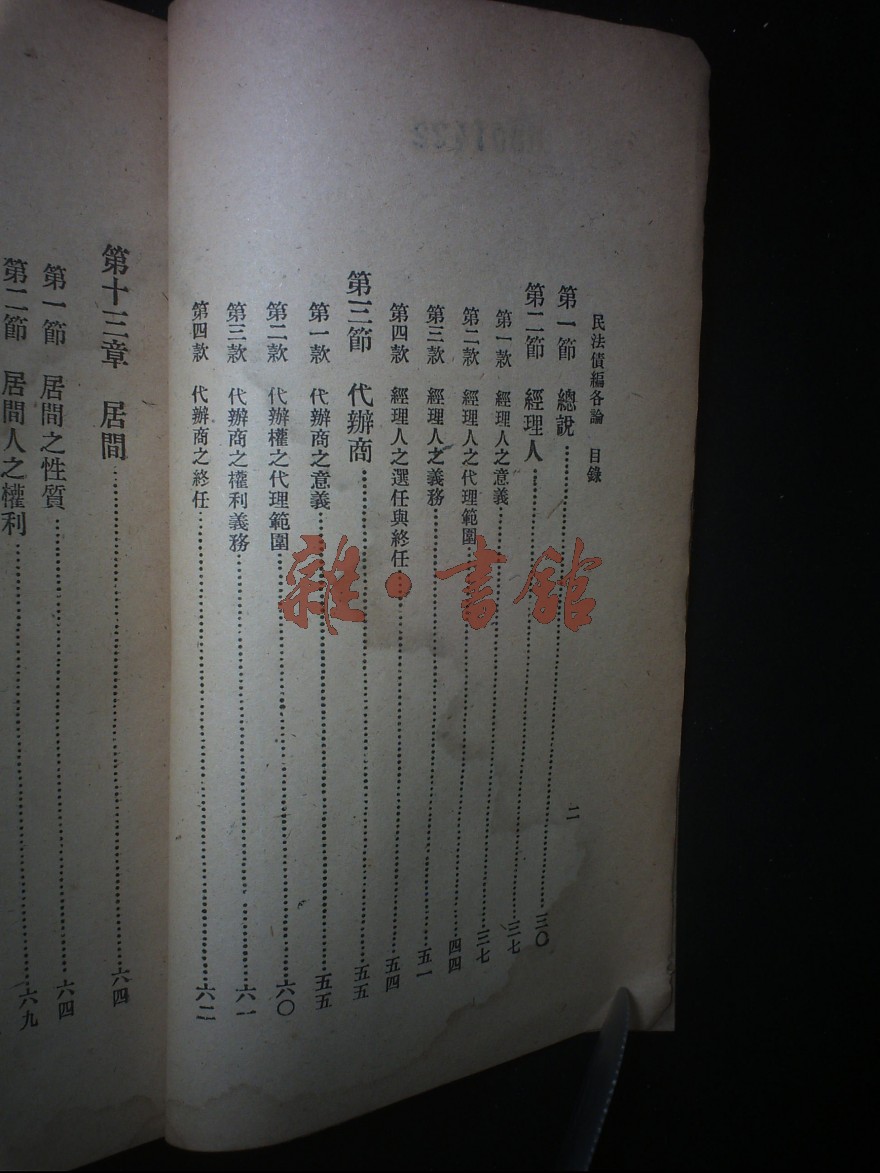 民法債編各論　目錄
二
第一節　總說…………三〇
第二節　經理人…………三七
第一款　經理人之意義…………三七
第二款　經理人之代理範圍…………四四
第三款　經理人之義務…………五一
第四款　經理人之選任與終任…………五四
第三節　代辦商…………五五
第一款　代辦商之意義…………五五
第二款　代辦權之代理範圍…………六〇
第三款　代辦商之權利義務…………六一
第四款　代辦商之終任…………六二
第十三章　居間…………六四
第一節　居間之性質…………六四
第二節　居間人之權利…………六九
雜·書館